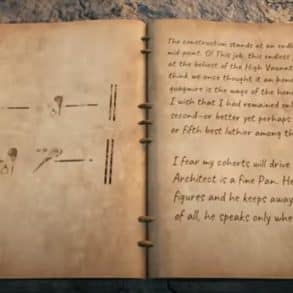 The construction stands at an endl
mid-point. O! This job, this endless
at the behest of the High Vaunat
think we once thought it an hono
quagmire is the wage of the hono
I wish that I had remained only
second—or better yet perhaps
or fifth best luthier among th
I fear my cohorts will drive
Architect is a fine Pan. He
figures and he keeps away
of all, he speaks only whe